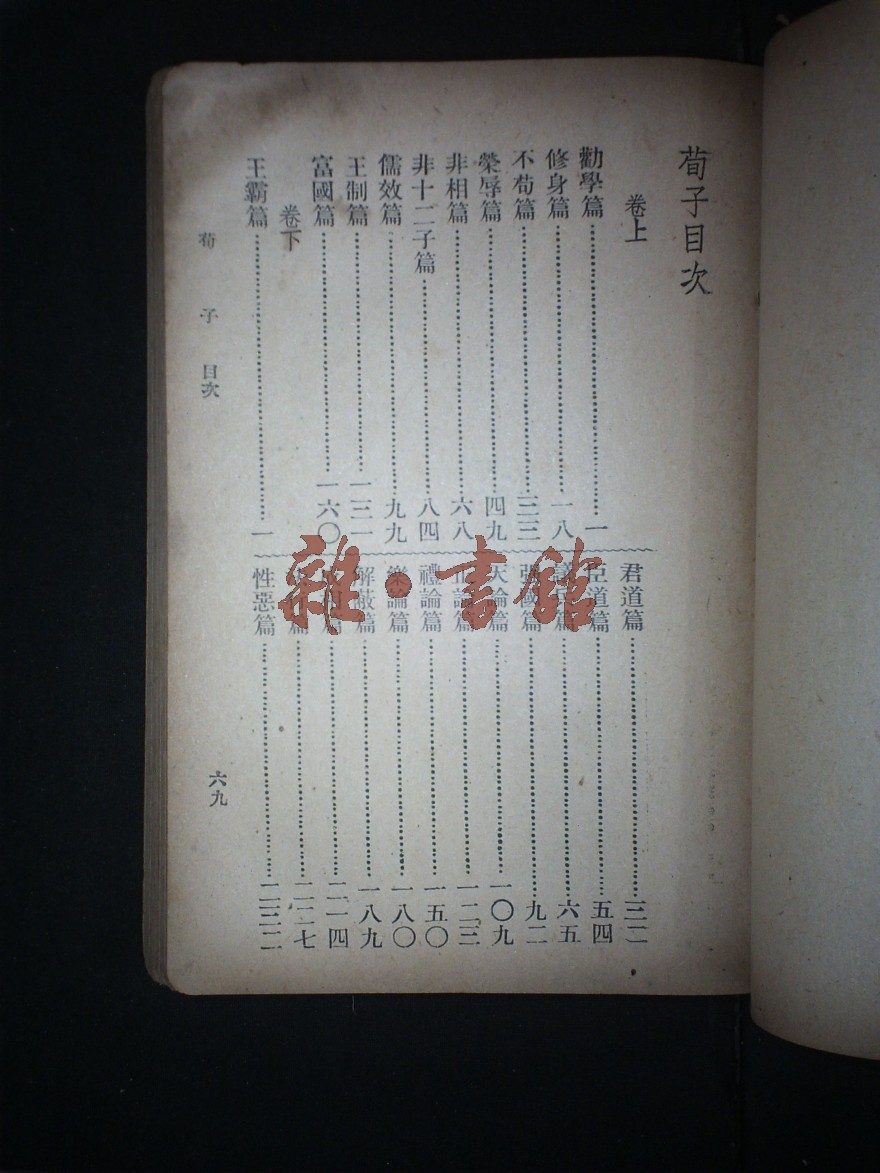 荀子目次
卷上
勸學篇……一
修身篇……一八
不苟篇……三三
榮辱篇……四九
非相篇……六八
非十二子篇……八四
儒效篇……九九
王制篇……一三一
富國篇……一六〇
卷下
王霸篇……一
君道篇……三二
臣道篇……五四
篇……六五
國篇……九二
天論篇……一〇九
正論篇……一二三
禮論篇……一五〇
樂論篇……一八〇
解蔽篇……一八九
篇……二一四
篇……二二七
性惡篇……二三二
荀子 目次
六九
雜·書館